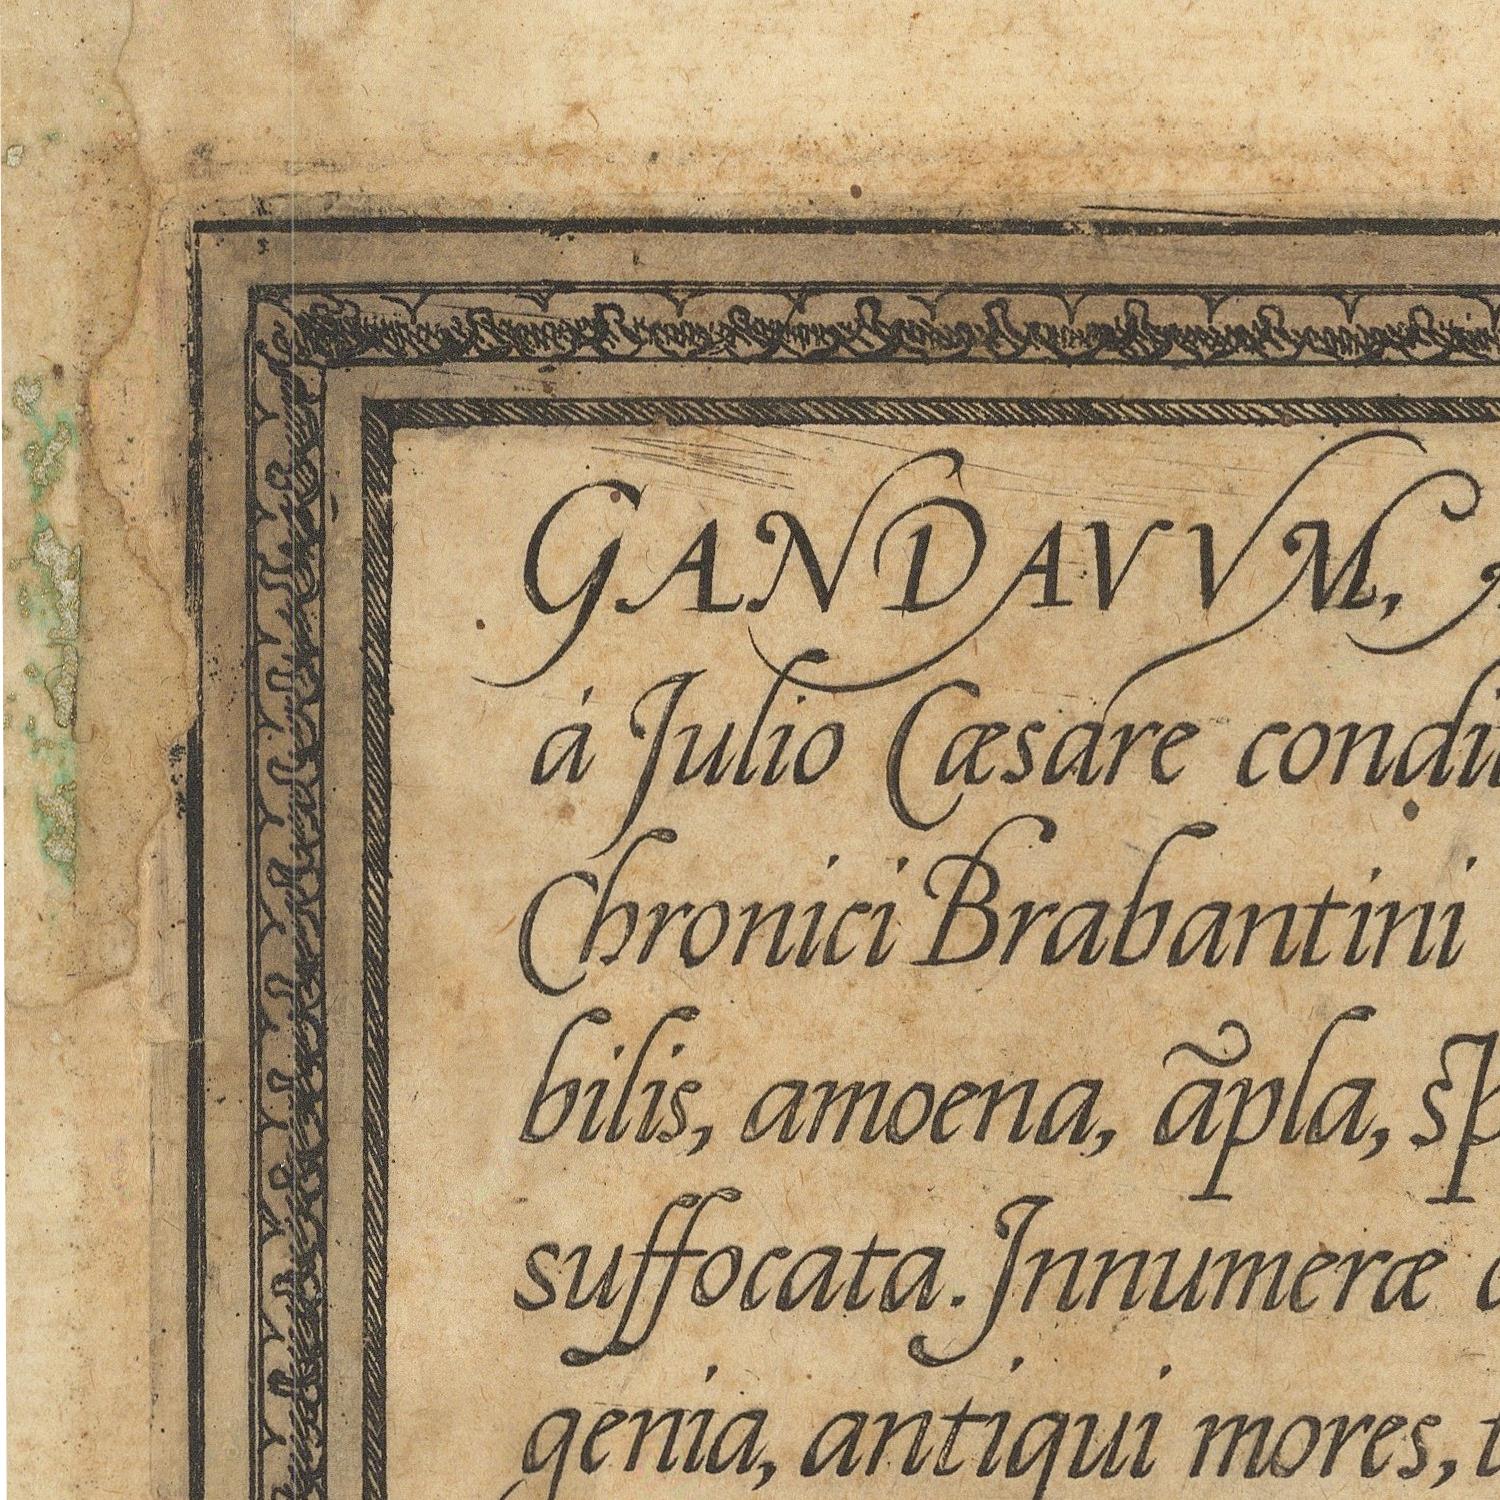 GANDAVVM,
á Julio Cæsare condi
Chronici Brabantini
bilis, amoena, ãpla, sp
suffocata. Innumeræ
genia, antiqui mores,